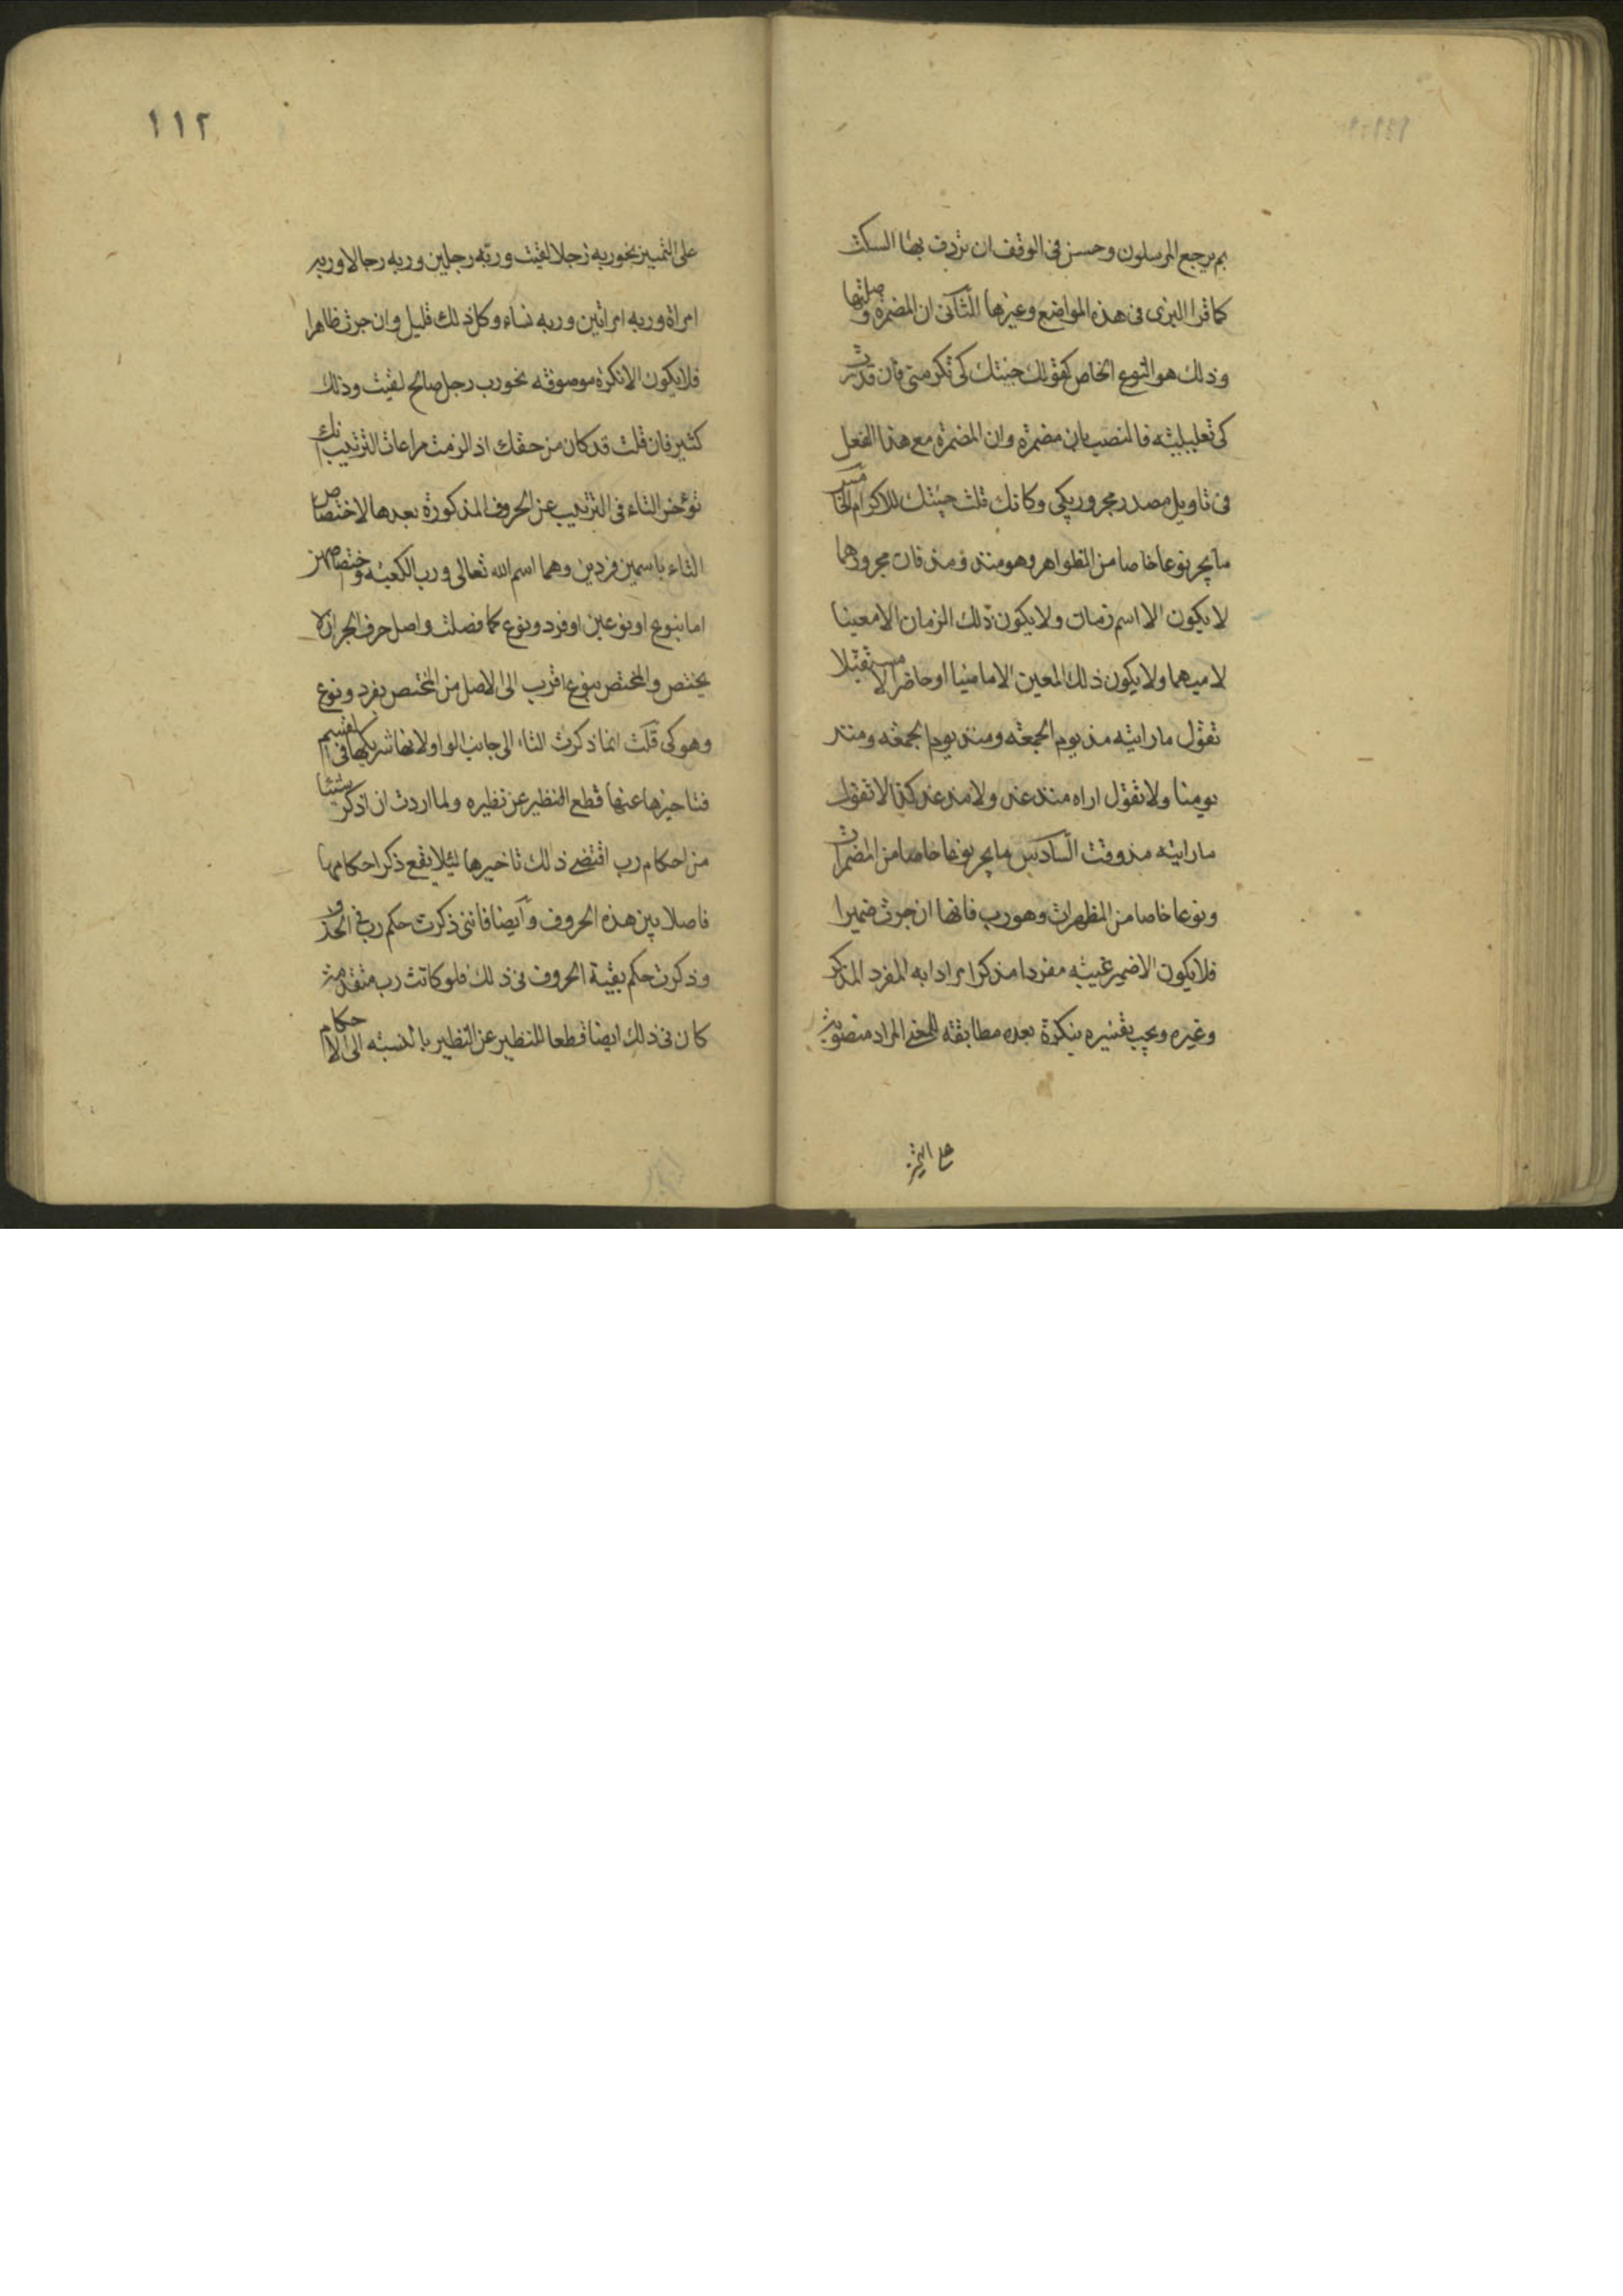 بم يرجع المرسلون وحسن فى الوقف ان تردف بهاء السكت
كما قرا البزى فى هذه المواضع وغيرها الثانى ان المضمرة وصلتها
وذلك هو النوع الخاص كقولك جئتك كى تكرمنى فان قدرت
كى تعليلية فالنصب بان مضمرة وان المضمرة مع هذا الفعل
فى تاويل مصدر مجرور بكى وكانك قلت جئتك للاكرام الخامس
ما يجر نوعا خاصا من الظواهر وهو منذ ومذ فان مجرورهما
لا يكون الا اسم زمان ولا يكون ذلك الزمان الا معينا
لا مبهما ولا يكون ذلك المعين الا ماضيا او حاضرا لا مستقبلا
تقول ما رايته مذ يوم الجمعة ومنذ يوم الجمعة ومنذ
يومنا ولا تقول اراه منذ غد ولا مذ غد كذا لا تقول
ما رايته مذ وقت السادس ما يجر نوعا خاصا من المضمرات
ونوعا خاصا من المظهرات وهو رب فانها ان جرت ضميرا
فلا يكون الا ضمير غيبة مفردا مذكرا مرادا به المفرد المذكر
وغيره ويجب تفسيره بنكرة بعده مطابقة للمعنى المراد منصوبة
على التميز
١١٢
على التمييز نحو ربه رجلا لقيت وربه رجلين وربه رجالا وربه
امراة وربه امراتين وربه نساء وكل ذلك قليل وان جرت ظاهرا
فلا يكون الا نكرة موصوفه نحو رب رجل صالح لقيت وذلك
كثير فان قلت قد كان من حقك اذ الزمت مراعات الترتيب انك
تؤخر التاء فى الترتيب عن الحروف المذكورة بعدها لاختصاص
التاء باسمين فردين وهما اسم الله تعالى ورب الكعبة واختصاصهن
اما بنوع او نوعين او فرد ونوع كما فصلت واصل حرف الجر ان لا
يختص والمختص بنوع اقرب الى الاصل من المختص بفرد ونوع
وهو كى قلت انما ذكرت التاء الى جانب الواو لانها شريكها فى القسم
فتاخيرها عنها قطع النظير عن نظيره ولما اردت ان اذكر شيئا
من احكام رب اقتضى ذلك تاخيرها ليلا يقع ذكر احكامها
فاصلا بين هذه الحروف وايضا فاننى ذكرت حكم رب فى الحذف
وذكرت حكم بقية الحروف فى ذلك فلو كانت رب متقدمة
كان فى ذلك ايضا قطعا للنظير عن النظير بالنسبة الى الاحكام